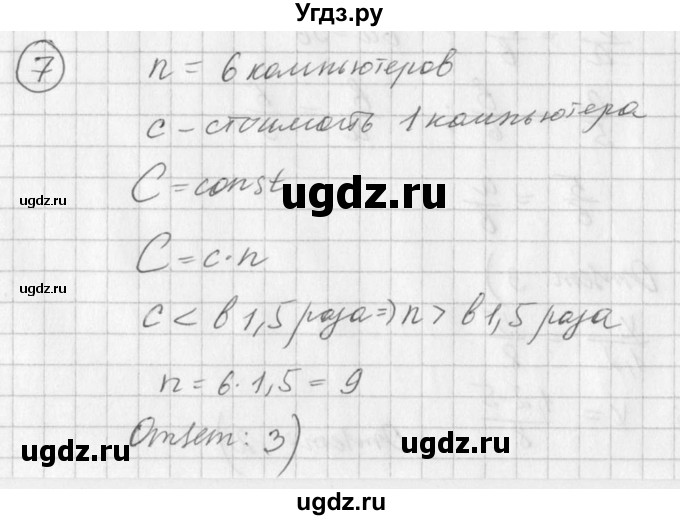 Угдз.ру
7
n = 6 компьютеров
c – стоимость 1 компьютера
C = const
ugdz.ru
ugdz.ru
ugdz.ru
C = c · n
ugdz.ru
ugdz.ru
c < в 1,5 раза ⇒ n > в 1,5 раза
n = 6 · 1,5 = 9
Ответ: 3)
ugdz.ru
ugdz.ru
ugdz.ru
ugdz.ru